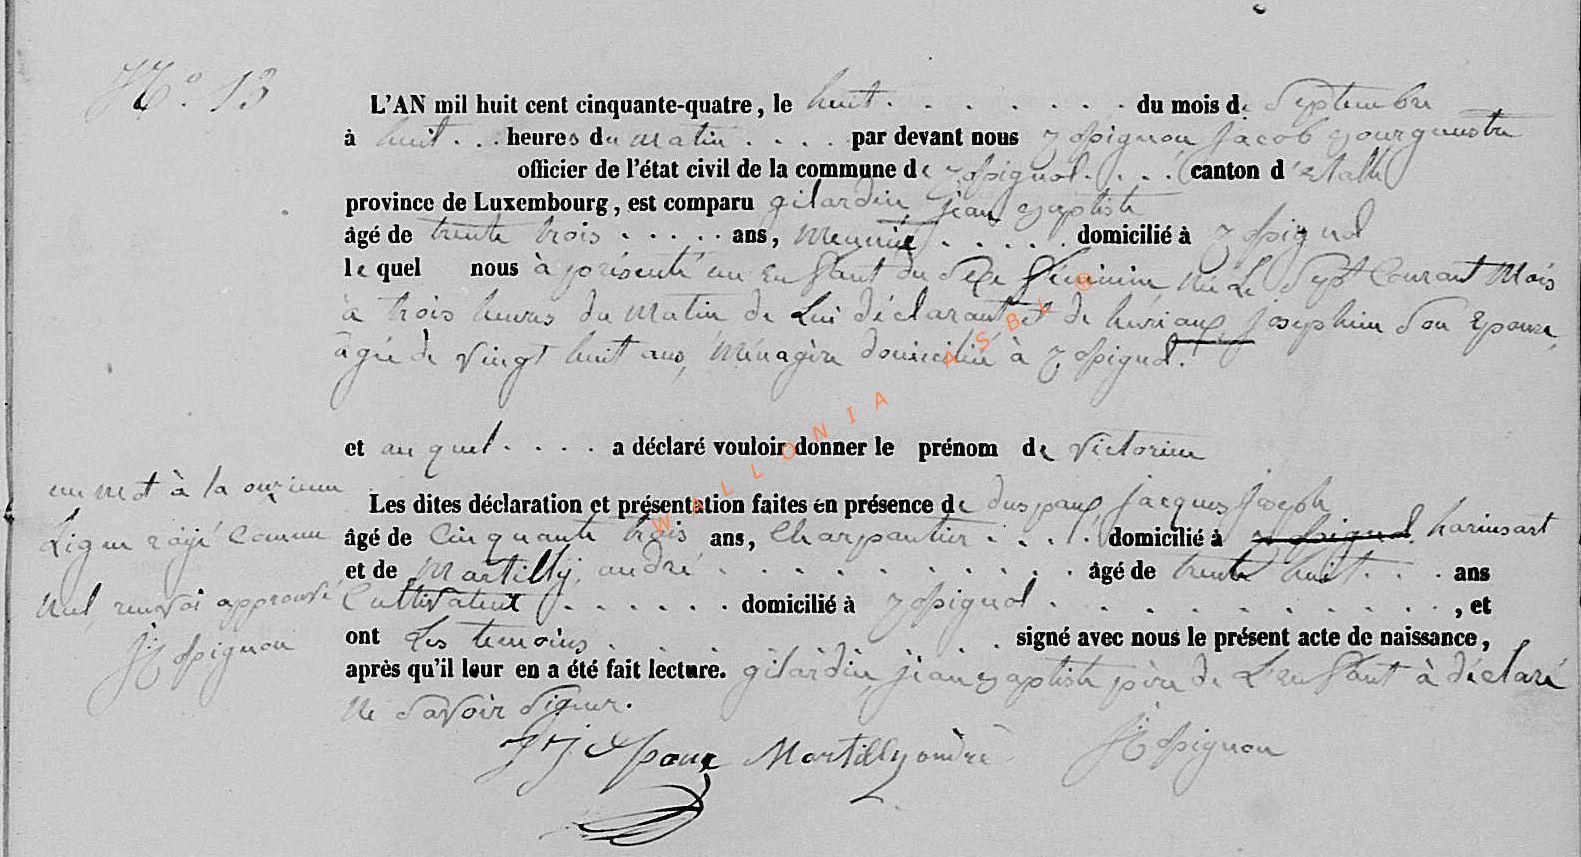 N.° 13
L'AN mil huit cent cinquante-quatre, le huit . . . . . . . du mois de Septembre
à huit . . . heures du Matin . . . . par devant nous Jacob Bourgmestre
officier de l'état civil de la commune de . . . . canton d'Etalle
province de Luxembourg, est comparu gilardin jean Baptiste
âgé de trente trois . . . . . ans, Meunié . . . . . domicilié à
le quel nous à présenté un Enfant du Sexe féminin Née Le Sept Courant Mois
à trois heures du Matin de Lui déclarant et de josephine Son Epouse,
âgée de Vingt huit ans, Ménagère domicilié à
et au quel . . . . a déclaré vouloir donner le prénom de Victorine
un mot à la onzieme
Les dites déclaration et présentation faites en présence de jacques joseph
Ligne rayé Comme
âgé de Cinquante trois ans, Charpantier . . . . domicilié à harinsart
et de Martilly, andré . . . . . . . . . . . âgé de trente huit . . . ans
Nul renvoi approuvé
Cultivateur . . . . . . domicilié à . . . . . . . . . . . , et
ont Les temoins . . . . . . . . . . signé avec nous le présent acte de naissance,
après qu'il leur en a été fait lecture. gilardin jean Baptiste père de L'enfant à déclaré
Ne Savoir Signer.
Martilly andrè
WALLONIA ASBL ®